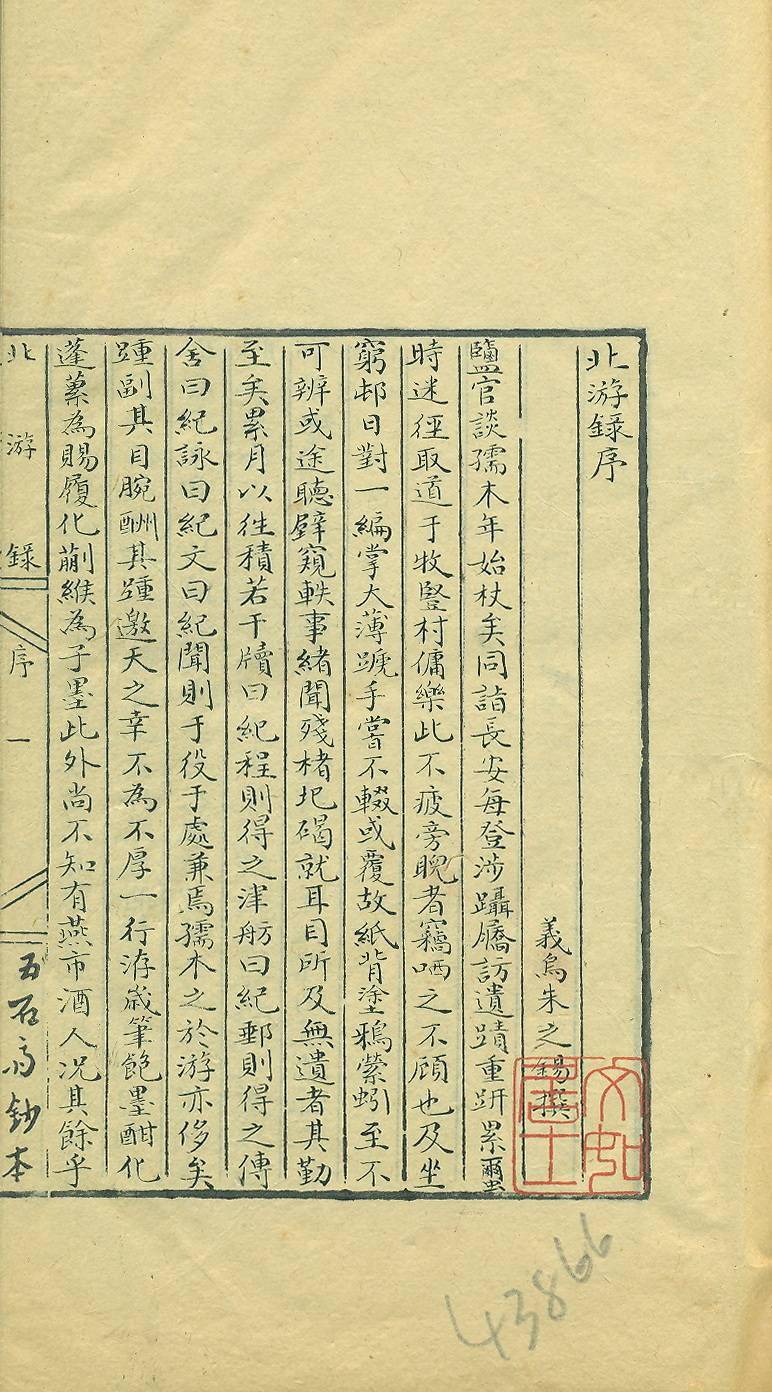 北游錄序
義烏朱之錫撰
鹽官談孺木年始杖矣同詣長安每登涉躡屩訪遺蹟重趼累蠒
時迷徑取道于牧豎村傭樂此不疲旁睨者竊哂之不顧也及坐
窮邨日對一編掌大薄蹏手嘗不輟或覆故紙背塗鴉縈蚓至不
可辨或途聽壁窺軼事緒聞殘楮圮碣就耳目所及無遺者其勤
至矣累月以徃積若干牘曰紀程則得之津舫曰紀郵則得之傳
舍曰紀詠曰紀文曰紀聞則于役于處兼焉孺木之於游亦侈矣
踵副其目腕酬其踵邀天之幸不為不厚一行洊歲筆飽墨酣化
蓬藟為賜履化蒯緱為子墨此外尚不知有燕市酒人况其餘乎
北游錄 序 一
五石齋鈔本
文如居士
43866